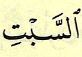 ٱلسَّبْتِ